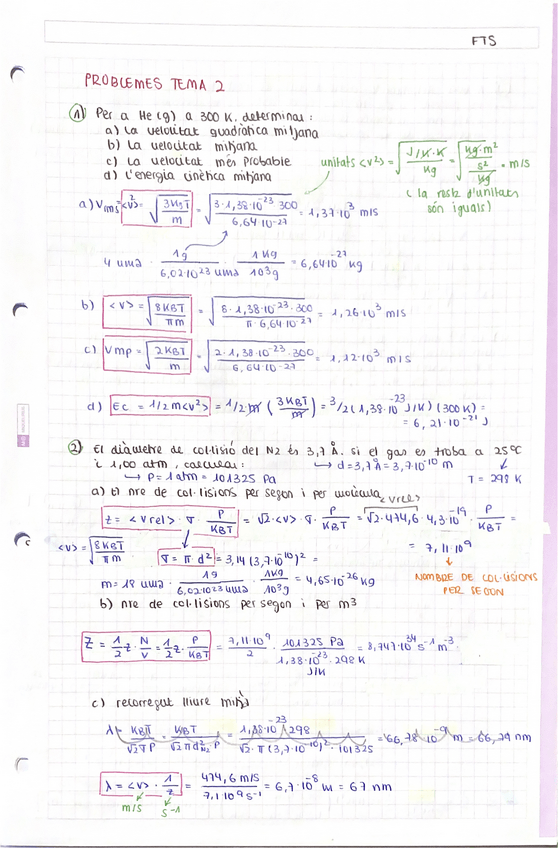 FTS
PROBLEMES TEMA 2
1) Per a He(g) a 300 K, determinar:
a) La velocitat quadràtica mitjana
b) La velocitat mitjana
c) La velocitat més probable
d) L'energia cinètica mitjana
unitats <v²> = √(J/K·K / Kg) = √(Kg·m²/s² / Kg) = m/s
(la resta d'unitats són iguals)
a) Vrms <v²> = √(3KBT / m) = √(3·1,38·10⁻²³·300 / 6,64·10⁻²⁷) = 1,37·10³ m/s
4 uma · 1g / 6,02·10²³ uma · 1Kg / 10³g = 6,64·10⁻²⁷ Kg
b) <v> = √(8KBT / πm) = √(8·1,38·10⁻²³·300 / π·6,64·10⁻²⁷) = 1,26·10³ m/s
c) Vmp = √(2KBT / m) = √(2·1,38·10⁻²³·300 / 6,64·10⁻²⁷) = 1,12·10³ m/s
d) Ec = 1/2 m<v²> = 1/2·m (3KBT / m) = 3/2 (1,38·10⁻²³ J/K)(300 K) =
= 6,21·10⁻²¹ J
2) El diàmetre de col·lisió del N2 és 3,7 Å. si el gas es troba a 25ºC
i 1,00 atm, calcular: → d = 3,7 Å = 3,7·10⁻¹⁰ m
→ P = 1 atm = 101325 Pa T = 298 K
a) El nre de col·lisions per segon i per molècula
<vrel>
z = <vrel> · σ · P/KBT = √2·<v>·σ·P/KBT = √2·474,6·4,3·10⁻¹⁹·P/KBT =
= 7,11·10⁹
<v> = √(8KBT / πm) σ = π·d² = 3,14 (3,7·10⁻¹⁰)² =
NOMBRE DE COL·LISIONS PER SEGON
m = 18 uma · 1g / 6,02·10²³ uma · 1Kg / 10³g = 4,65·10⁻²⁶ Kg
b) nre de col·lisions per segon i per m³
Z = 1/2 z · N/V = 1/2 z · P/KBT = 7,11·10⁹ / 2 · 101325 Pa / 1,38·10⁻²³ J/K · 298 K = 8,747·10³⁴ s⁻¹ m⁻³
c) recorregut lliure mitjà
λ = KBT / √2σP = KBT / √2πd²N₂P = 1,38·10⁻²³·298 / √2·π(3,7·10⁻¹⁰)²·101325 = 66,78·10⁻⁹ m = 66,74 nm
λ = <v> · 1/z = 474,6 m/s / 7,1·10⁹ s⁻¹ = 6,7·10⁻⁸ m = 67 nm
m/s s⁻¹